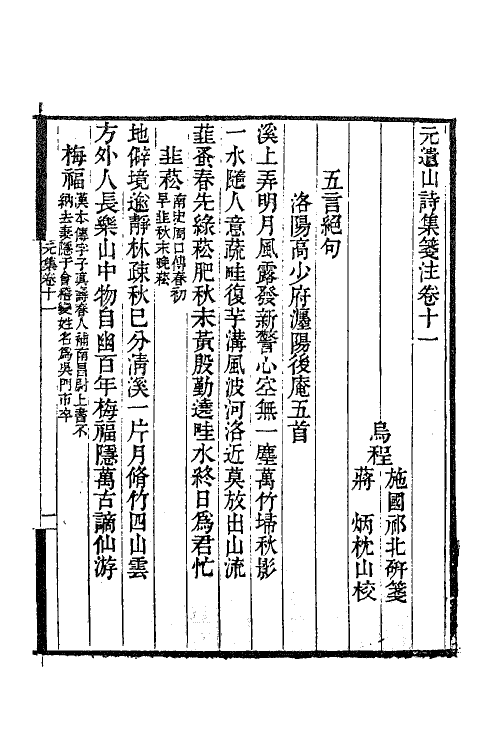 元遺山詩集箋注卷十一
烏程
施國祁北硏箋
蔣　炳枕山校
五言絕句
洛陽高少府瀍陽後庵五首
溪上弄明月風露發新警心空無一塵萬竹埽秋影
一水隨人意蔬畦復芋溝風波河洛近莫放出山流
韭蚤春先綠菘肥秋末黃殷勤遶畦水終日爲君忙
韭菘南史周顒傳春初
早韭秋末晚菘
地僻境逾靜林疎秋已分淸溪一片月脩竹四山雲
方外人長樂山中物自幽百年梅福隱萬古謫仙游
梅福漢本傳字子眞壽春人補南昌尉上書不
納去妻隱于會稽變姓名爲吳門市卒
元集卷十一
一